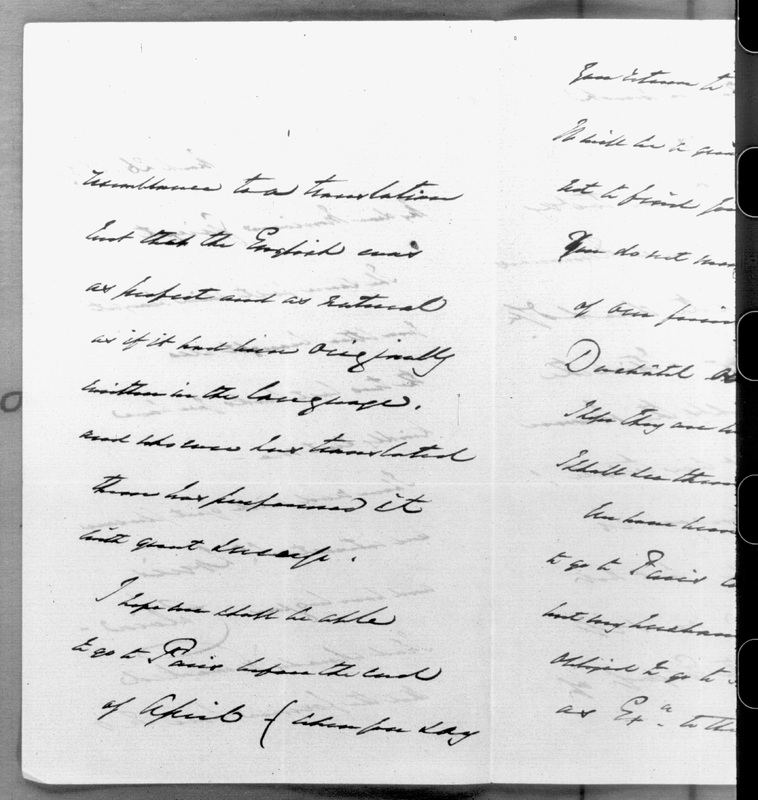 resemblance to a translation
but that the English was
as perfect and as natural
as if it had been originally
written in the language.
and whoever has translated
them has performed it
with great success.
I hope we shall be able
to go to Paris before the end
of April – (when you say
you return to
Which he
not to find you
You do not
of our
Duchâtel
I hope they are
I shall see them
We have been
to go to Paris
but my husband
obliged to go to
as Exª. to the